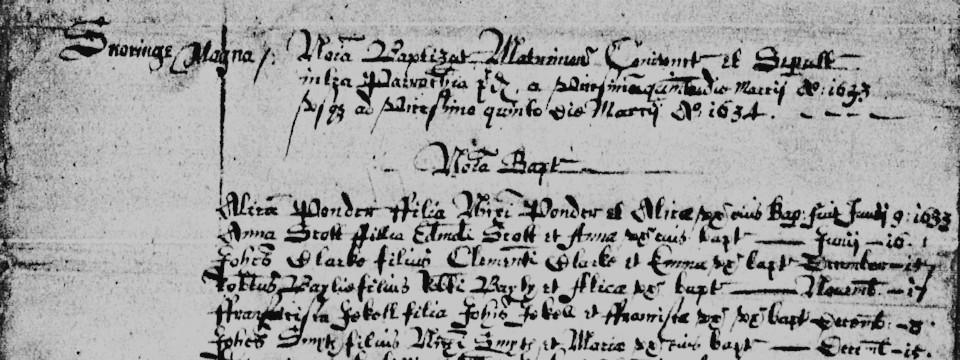 Snoringe Magna /. Noīa Baptizat Matrimon Coniunct et Sepult
infra Parochia pd a vicesimo quinto die Martij Ao: 1633
vsqz ad vicesimo quinto die Martij Ao: 1634.
Noīa Bapt
Alicia Ponder ffilia Nichi Ponder et Alicæ vx eius Bap: fuit Junij 9: 1633
Anna Scott ffilia Edmdi Scott et Annæ vx eius bapt — Junij - 16.
Johēs Clarke filius Clementi Clarke et Emma vx bapt December - 15
Robtus Baylie filius Robti Bayly et Alica vx bapt — Novemb. - 17
ffrancisca Jekell filia Johīs Jekell et ffrancisca vx bapt Decemb: - 8.
Johēs Smyth filius Nichi Smyth et Maria vx eius bapt — Decemb - 15.